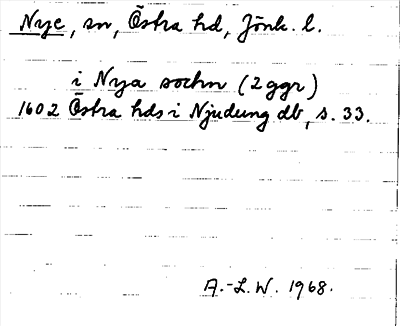 Nye, sn, Östra hd, Jönk. l.
i Nya sochn (2 ggr)
1602 Östra hds i Njudung db, s. 33.
A.-L.W. 1968.